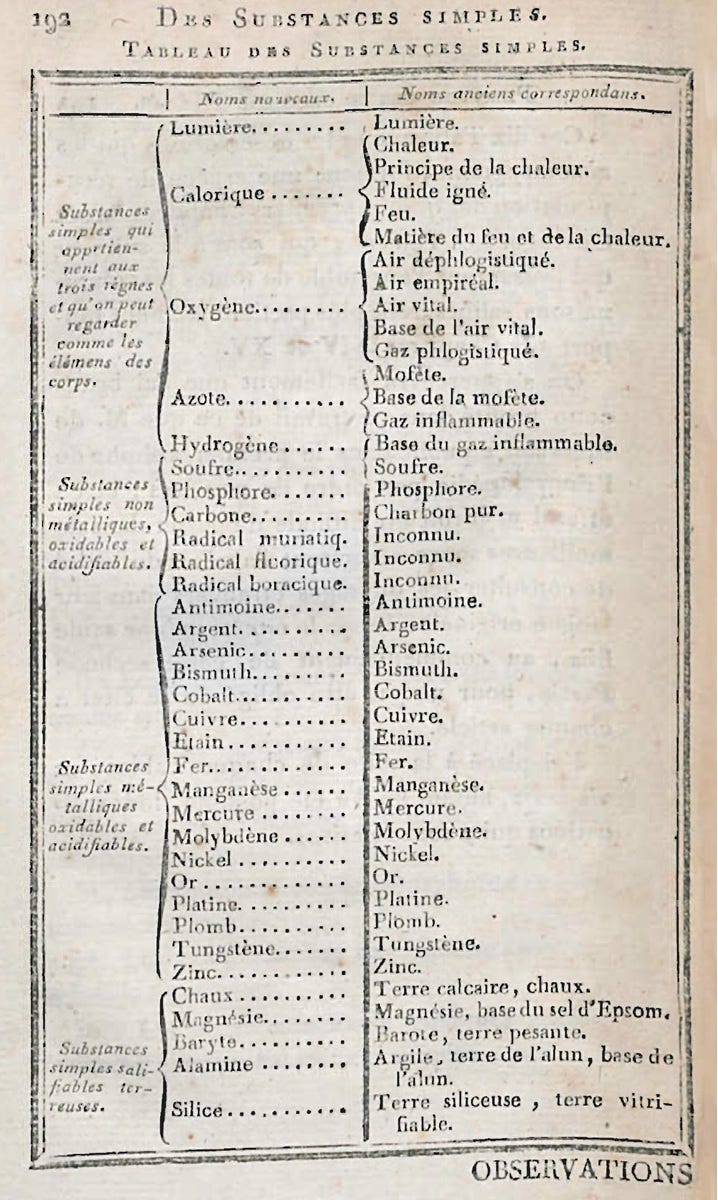 192 DES SUBSTANCES SIMPLES.
TABLEAU DES SUBSTANCES SIMPLES.
Noms nouveaux. Noms anciens correspondans.
Substances simples qui apprtiennent aux trois règnes et qu'on peut regarder comme les élémens des corps.
Lumière......... Lumière.
Calorique ....... Chaleur.
Principe de la chaleur.
Fluide igné.
Feu.
Matière du feu et de la chaleur.
Oxygène......... Air déphlogistiqué.
Air empiréal.
Air vital.
Base de l'air vital.
Azote. .......... Gaz phlogistiqué.
Mofète.
Base de la mofète.
Hydrogène...... Gaz inflammable.
Base du gaz inflammable.
Substances simples non métalliques, oxidables et acidifiables.
Soufre.......... Soufre.
Phosphore....... Phosphore.
Carbone......... Charbon pur.
Radical muriatiq. Inconnu.
Radical fluorique. Inconnu.
Radical boracique. Inconnu.
Substances simples métalliques oxidables et acidifiables.
Antimoine....... Antimoine.
Argent.......... Argent.
Arsenic......... Arsenic.
Bismuth......... Bismuth.
Cobalt.......... Cobalt.
Cuivre.......... Cuivre.
Etain........... Etain.
Fer............. Fer.
Manganèse ...... Manganèse.
Mercure ........ Mercure.
Molybdène ...... Molybdène.
Nickel ......... Nickel.
Or.............. Or.
Platine. ........ Platine.
Plomb.......... Plomb.
Tungstène....... Tungstène.
Zinc............ Zinc.
Substances simples salifiables terreuses.
Chaux .......... Terre calcaire, chaux.
Magnésie........ Magnésie, base du sel d'Epsom.
Baryte.......... Barote, terre pesante.
Alamine ........ Argile, terre de l'alun, base de
l'alun.
Silice........... Terre siliceuse, terre vitri-
fiable.
OBSERVATIONS